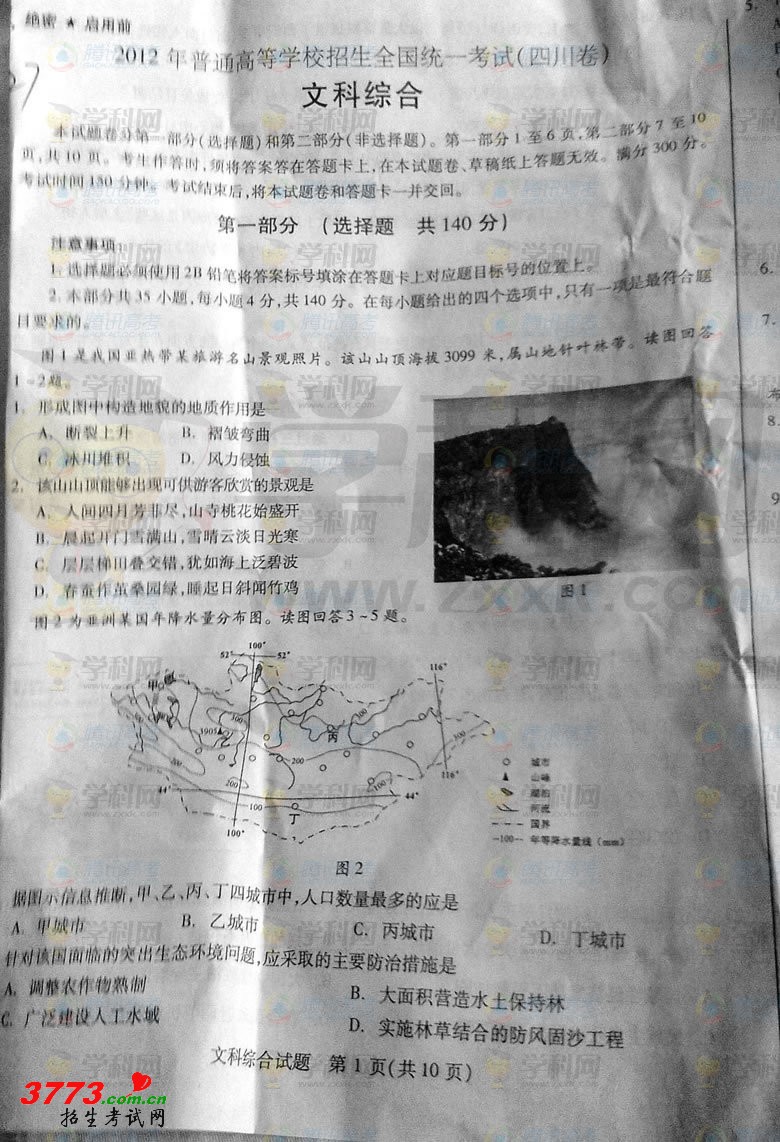 绝密 ★ 启用前
2012年普通高等学校招生全国统一考试(四川卷)
文科综合
本试题卷分第一部分(选择题)和第二部分(非选择题)。第一部分1至6页,第二部分7至10
页,共10页。考生作答时,须将答案答在答题卡上,在本试题卷、草稿纸上答题无效。满分300分。
考试时间150分钟。考试结束后,将本试题卷和答题卡一并交回。
第一部分 (选择题 共140分)
注意事项:
1.选择题必须使用2B铅笔将答案标号填涂在答题卡上对应题目标号的位置上。
2.本部分共35小题,每小题4分,共140分。在每小题给出的四个选项中,只有一项是最符合题
目要求的。
图1是我国亚热带某旅游名山景观照片。该山山顶海拔3099米,属山地针叶林带。读图回答
1~2题。
1. 形成图中构造地貌的地质作用是
A. 断裂上升 B. 褶皱弯曲
C. 冰川堆积 D. 风力侵蚀
2. 该山山顶能够出现可供游客欣赏的景观是
A. 人间四月芳菲尽,山寺桃花始盛开
B. 晨起开门雪满山,雪晴云淡日光寒
C. 层层梯田叠交错,犹如海上泛碧波
D. 春蚕作茧桑园绿,睡起日斜闻竹鸡
图1
图2为亚洲某国年降水量分布图。读图回答3~5题。
100°
52° 52°
116°
甲
100
1905
丙
200
300
200
100
116°
44° 44°
100
丁
100°
城市
山峰
湖泊
河流
国界
—100— 年等降水量线(mm)
图2
据图示信息推断,甲、乙、丙、丁四城市中,人口数量最多的应是
A. 甲城市 B. 乙城市 C. 丙城市 D. 丁城市
针对该国面临的突出生态环境问题,应采取的主要防治措施是
A. 调整农作物熟制 B. 大面积营造水土保持林
C. 广泛建设人工水域 D. 实施林草结合的防风固沙工程
文科综合试题 第1页(共10页)
5.
6.
7.
8.
9
学科网
www.zxxk.com
腾讯高考
3773.com.cn
招生考试网